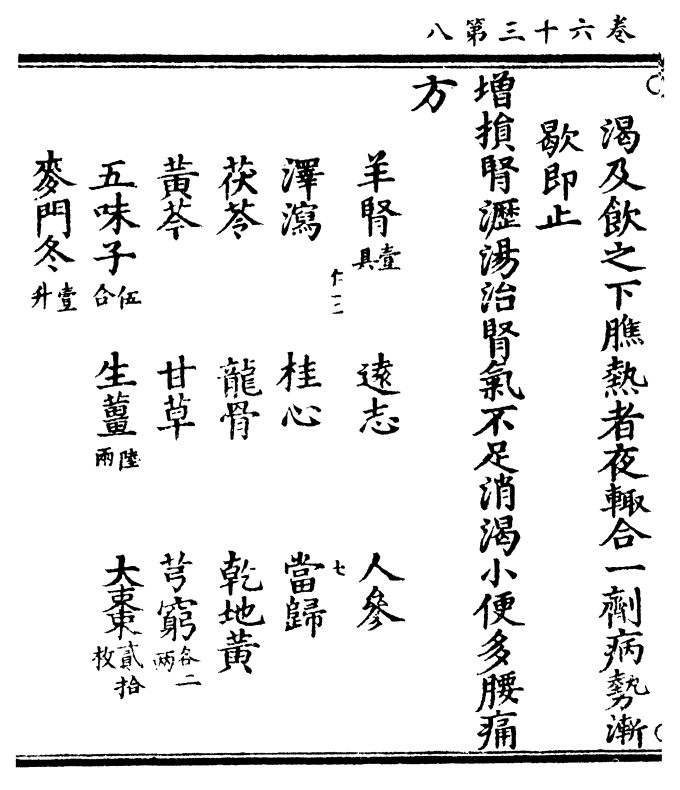 卷六十三第八
渴及飲之下膲熱者夜輙合一劑病勢漸
歇即止
增損腎瀝湯治腎氣不足消渴小便多腰痛
方
羊腎壹具 遠志 人參
仁三 七
澤瀉 桂心 當歸
茯苓 龍骨 乾地黃
黃芩 甘草 芎窮各二兩
五味子伍合 生薑陸兩 大棗貳拾枚
麥門冬壹升